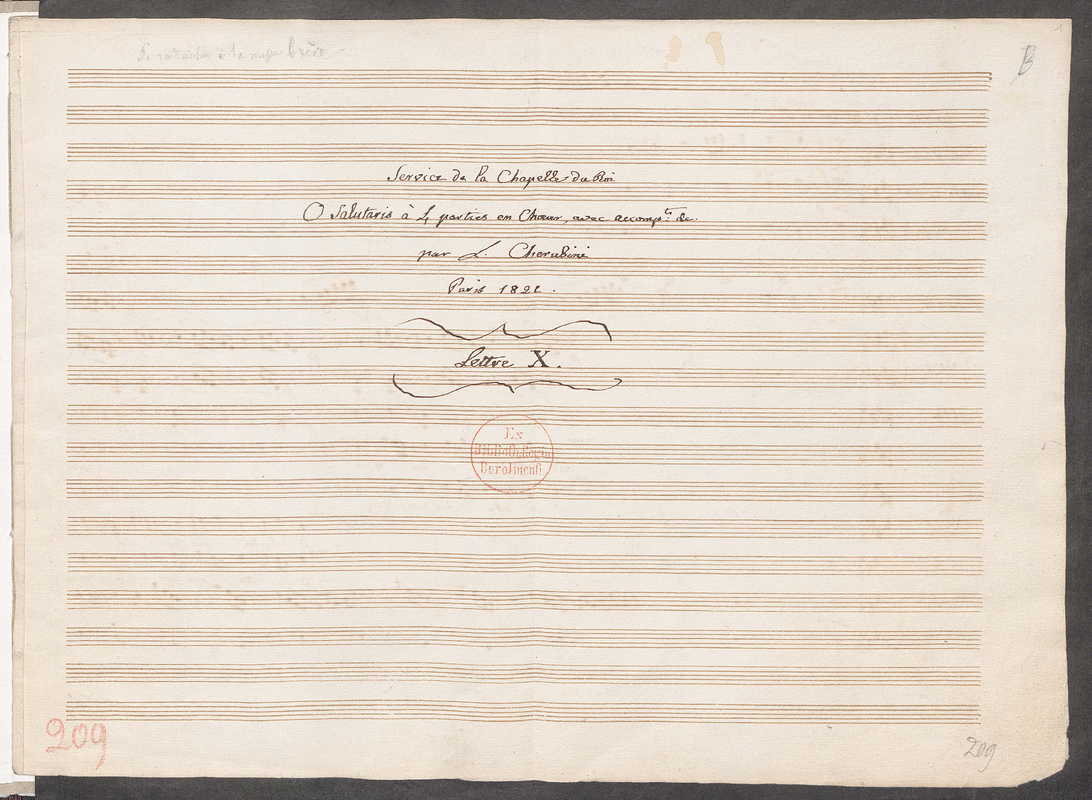 à la messe brève
B
Service de la Chapelle du Roi
O Salutaris à 4 parties en Chœur, avec accomp.ts &c.
par L. Cherubini
Paris 1822.
Lettre X.
Ex
Biblioth. Regia
Berolinensi
209
209